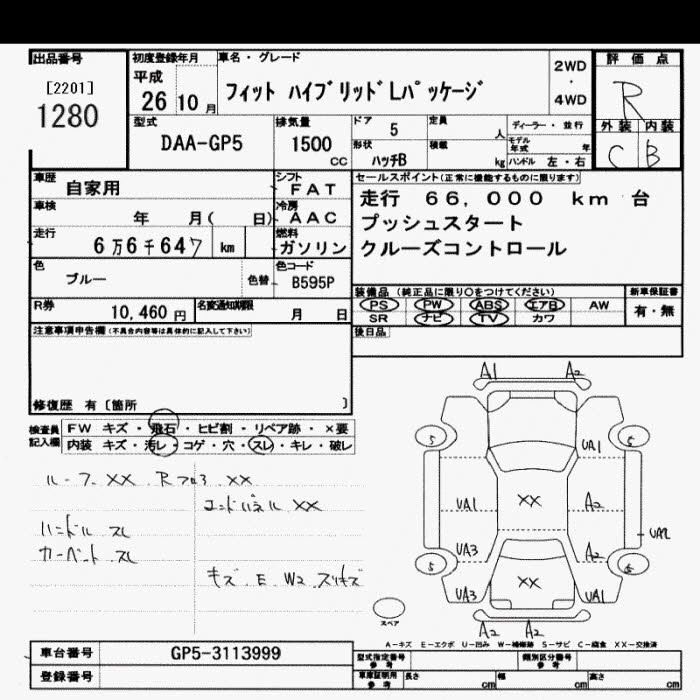 出品番号
[2201]
1280
初度登録年月
平成
26年10月
車名・グレード
フィット ハイブリッドLパッケージ
2WD
・
4WD
評価点
R
外装 内装
C B
型式
DAA-GP5
排気量
1500
cc
ドア 5
形状 ハッチB
定員 人
積載 kg
ディーラー・並行
モデル年式 年
ハンドル 左・右
車歴 自家用
シフト FAT
車検 年 月( 日)
冷房 AAC
走行 6万6千647 km
燃料 ガソリン
色 ブルー 色替
色コード B595P
R券 10,460円
名変通知期限 月 日
セールスポイント(正常に機能するものに限ります)
走行 66,000 km 台
プッシュスタート
クルーズコントロール
装備品(純正品に限り○をつけてください)
PS PW ABS エアB AW
SR ナビ TV カワ
新車保証書
有・無
後日品
注意事項申告欄(不具合内容等は具体的に記入して下さい)
修復歴 有〔箇所 〕
検査員記入欄
FW キズ・飛石・ヒビ割・リペア跡・×要
内装 キズ・汚レ・コゲ・穴・スレ・キレ・破レ
ルーフ XX. Rフロア XX
エンドパネル XX
ハンドル スレ
カーペット スレ
キズ. E. W2 スリキズ
A1 A2
5 5
UA1
UA1 XX A2
UA2
UA3 A2
5 5
UA3 XX UA1
A2 A2
スペア
A-キズ E-エクボ U-凹み W-補修跡 S-サビ C-腐食 XX-交換済
車台番号 GP5-3113999
登録番号
型式指定番号 参考
類別区分番号 参考
車庫証明用 参考 長さ cm 幅 cm 高さ cm